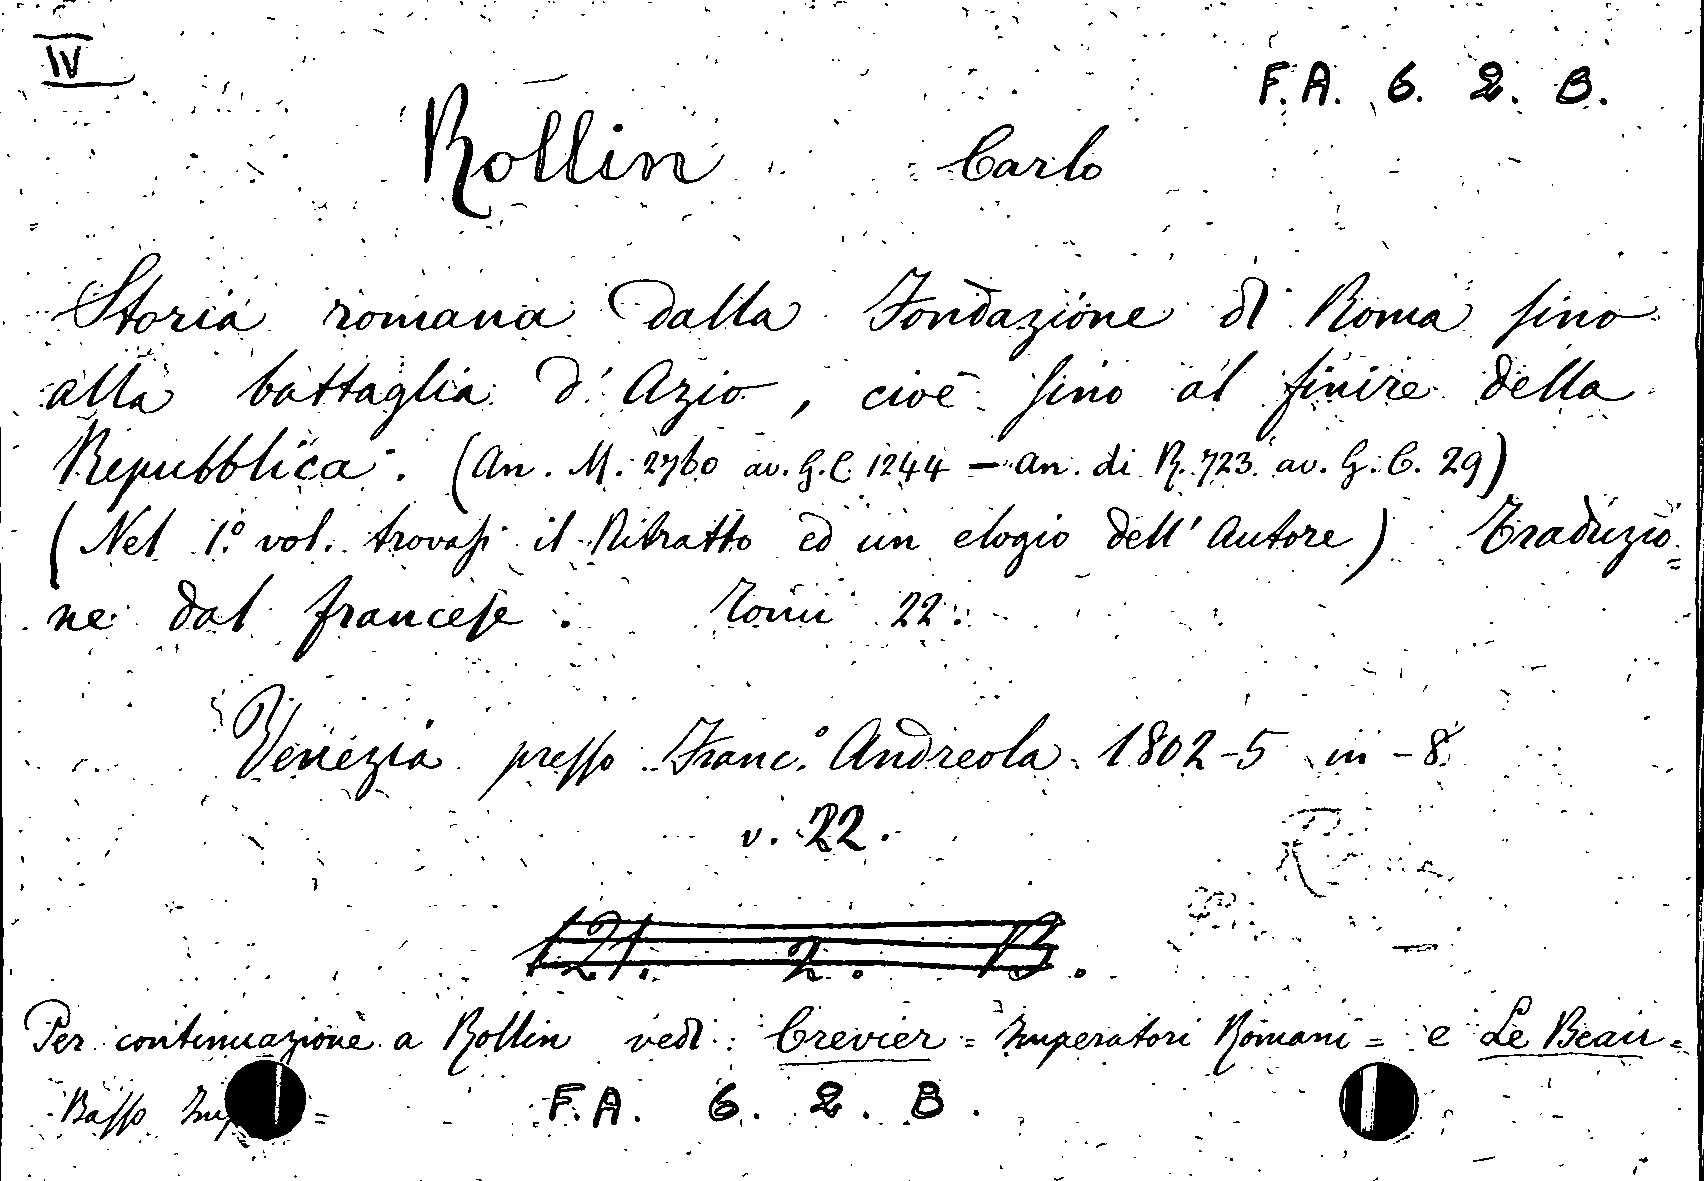 IV
F.A. 6. 2. B.
Rollin Carlo
Storia romana dalla Fondazione di Roma sino
alla battaglia d'Azio, cioè sino al finire della
Repubblica. (An. M. 2760 av. G. C. 1244 — an. di R. 723. av. G. C. 29)
(Nel 1.° vol. trovasi il Ritratto ed un elogio dell'Autore) Traduzio=
ne dal francese. Tomi 22.
Venezia presso Franc.° Andreola. 1802-5 in-8.
v. 22.
121. 2. B.
Per continuazione a Rollin vedi: Crevier = Imperatori Romani = e Le Beau =
Basso =
F.A. 6. 2. B.